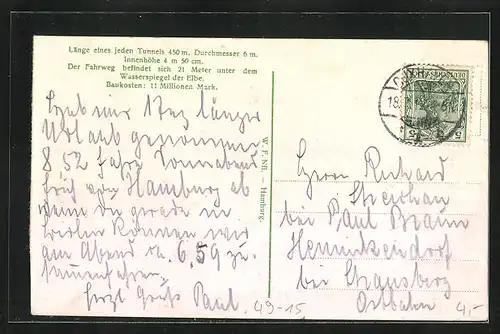 Länge eines jeden Tunnels 450 m, Durchmesser 6 m.
Innenhöhe 4 m 50 cm.
Der Fahrweg befindet sich 21 Meter unter dem
Wasserspiegel der Elbe.
Baukosten: 11 Millionen Mark.
Hab mir 1 Tag länger
Urlaub genommen
8 52 fahr Sonnabend
früh von Hamburg ab
wenn du gerade in
Berlin können wir
am Abend 6.59 zu-
sammenfahren.
Herzl Gruß Paul.
W. F. Nfl. — Hamburg.
CUXH
18
Herrn Richard
bei Paul Braun
Hennickendorf
bei Strausberg
Ostbahn
49-15
4,-